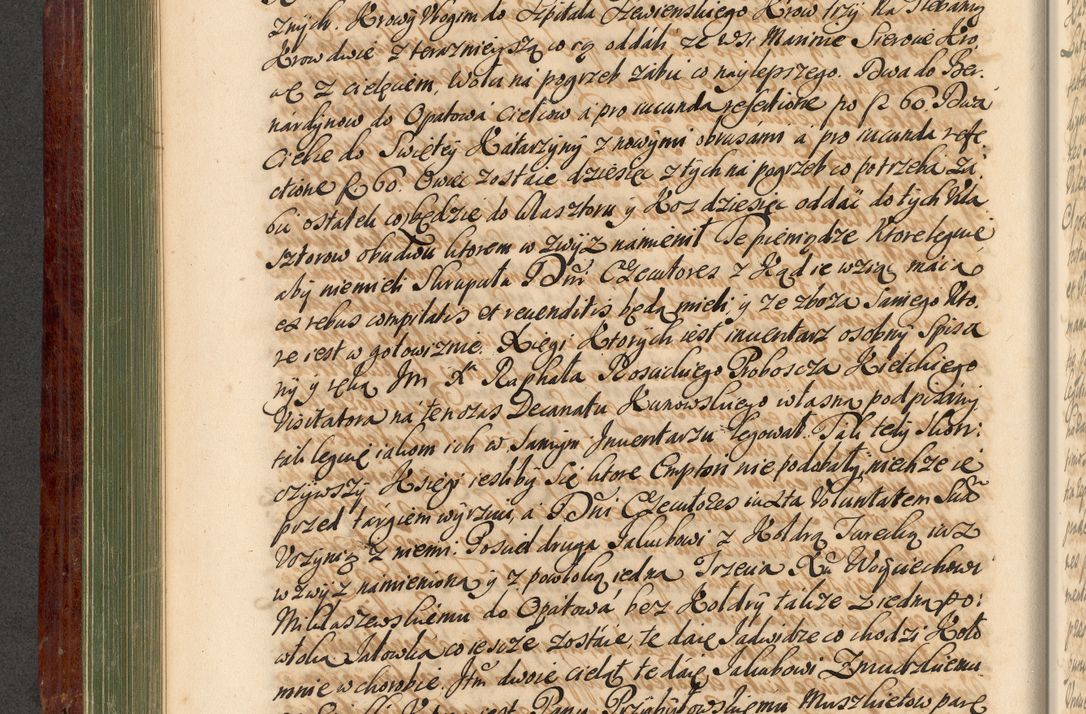 znych. Krowy Wogim do Szpitala Czewienskiego Krow trzy na Plebanij
Krow dwie z teraznieyszą co ią oddali ze Wsi Marinie Sierocie Kro
wę z cielęciem, Wołu na pogrzeb zabić co naylepszego. Dwa do Ber
nardynow do Opatowa Cielcow a pro iucunda refectione po f 60 Dwa
Cielce do Swiętey Katarzyny z nowymi obrusami a pro iucunda refe
ctione f 60. Owiec zostaie dziesięc z tych na pogrzeb co potrzeba za
bic ostatek co będzie do klasztoru y Koz dziesięc oddać do tych Kla
sztorow obudwu ktorem w zwyz namienił Te pieniądze Ktore leguię
aby niemieli skrupułu DDni Executores z Kąd ie wziąć maią
ex rebus compilatis et revenditis będą mieli, y ze zboza samego Kto
re iest w gotowiznie. Xięgi Ktorych iest inwentarz osobny spisa
ny y ręką Jm X Raphała Kosuckiego Proboscza Kielckiego
Visitatora na ten czas Decanatu Kunowskiego własną podpisany
tak leguię iakom ich w samym Inwentarzu legował. Tak tedy skon:
czywszy Ksiegi iesliby się ktore Emptori nie podobały niechze ie
przed targiem wyrzuci, a DDni Executores iuxta Voluntatem suam
Uczynią z niemi. Posciel druga Jakubowi z Kołdrą Turecką iusz
w zwyz namienioną y z powłoką iedna Trzecia Xu Woyciechowi
Mikłaszewskiemu do Opatowa bez Kołdry także z iedną po:
włoką Jałowka co ieszcze zostaie, te daię Jadwidze co chodzi Koło
mnie w chorobie. Jtm dwoie cieląt te daię Jakubowi Zmudzkiemu
iest Panu Przybyłowskiemu Muszkietow parę